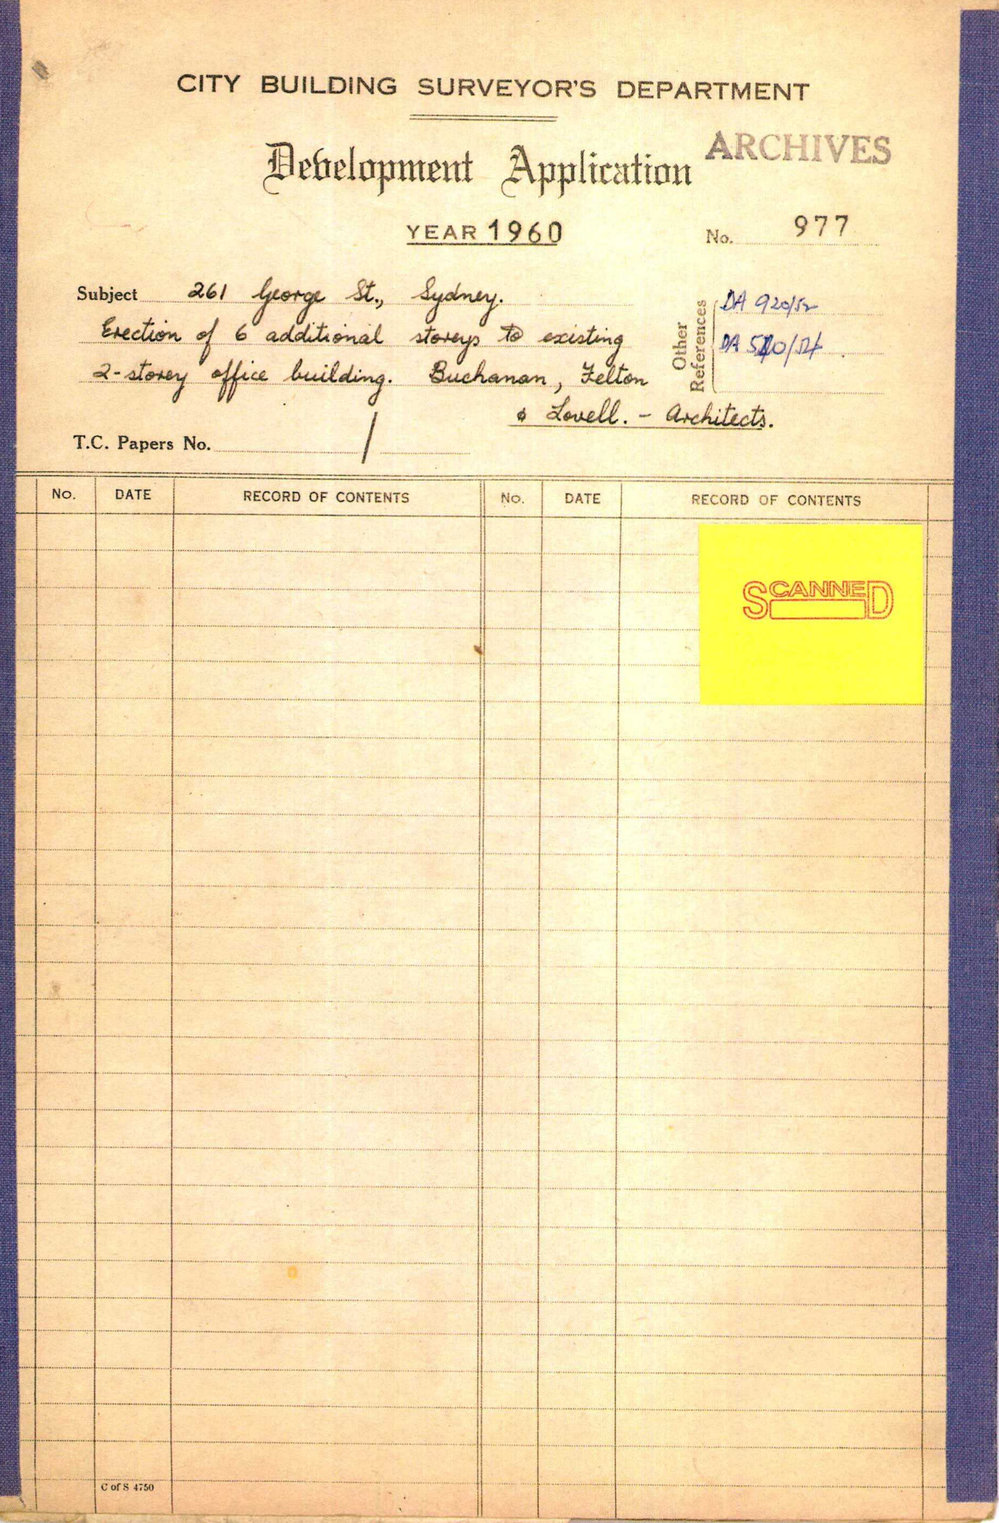 CITY BUILDING SURVEYOR'S DEPARTMENT
Development Application
ARCHIVES
YEAR 1960
No. 977
Subject 261 George St., Sydney.
Erection of 6 additional storeys to existing
2-storey office building. Buchanan, Felton
& Lovell. - Architects.
Other References
DA 920/52
DA /54
T.C. Papers No. /
No. DATE RECORD OF CONTENTS No. DATE RECORD OF CONTENTS
SCANNED
C of S 4750